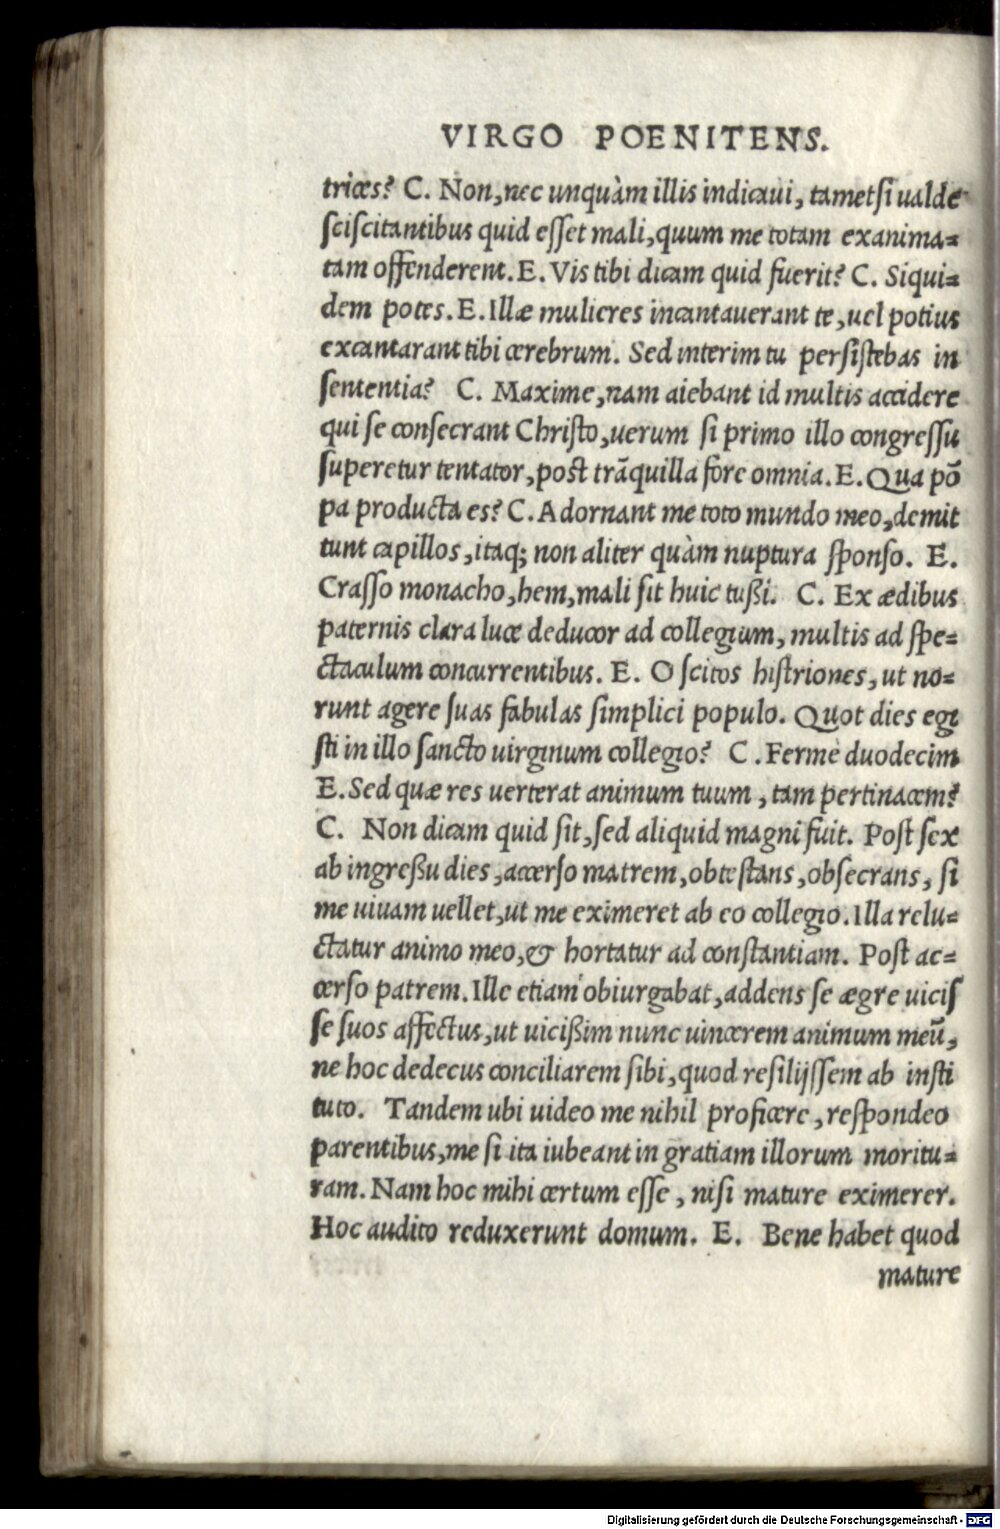 VIRGO POENITENS.
trices? C. Non, nec unquàm illis indicaui, tametsi ualde
sciscitantibus quid esset mali, quum me totam exanima=
tam offenderent. E. Vis tibi dicam quid fuerit? C. Siqui=
dem potes. E. Illæ mulieres incantauerant te, uel potius
excantarant tibi cerebrum. Sed interim tu persistebas in
sententia? C. Maxime, nam aiebant id multis accidere
qui se consecrant Christo, uerum si primo illo congressu
superetur tentator, post trãquilla fore omnia. E. Qua põ
pa producta es? C. Adornant me toto mundo meo, demit
tunt capillos, itaq; non aliter quàm nuptura sponso. E.
Crasso monacho, hem, mali sit huic tußi. C. Ex ædibus
paternis clara luce deducor ad collegium, multis ad spe=
ctaculum concurrentibus. E. O scitos histriones, ut no=
runt agere suas fabulas simplici populo. Quot dies egi
sti in illo sancto uirginum collegio? C. Fermè duodecim
E. Sed quæ res uerterat animum tuum, tam pertinacem?
C. Non dicam quid sit, sed aliquid magni fuit. Post sex
ab ingreßu dies, accerso matrem, obtestans, obsecrans, si
me uiuam uellet, ut me eximeret ab eo collegio. Illa relu=
ctatur animo meo, & hortatur ad constantiam. Post ac=
cerso patrem. Ille etiam obiurgabat, addens se ægre uicis
se suos affectus, ut uicißim nunc uincerem animum meũ,
ne hoc dedecus conciliarem sibi, quod resilijssem ab insti
tuto. Tandem ubi uideo me nihil proficere, respondeo
parentibus, me si ita iubeant in gratiam illorum moritu=
ram. Nam hoc mihi certum esse, nisi mature eximerer.
Hoc audito reduxerunt domum. E. Bene habet quod
mature
Digitalisierung gefördert durch die Deutsche Forschungsgemeinschaft - DFG